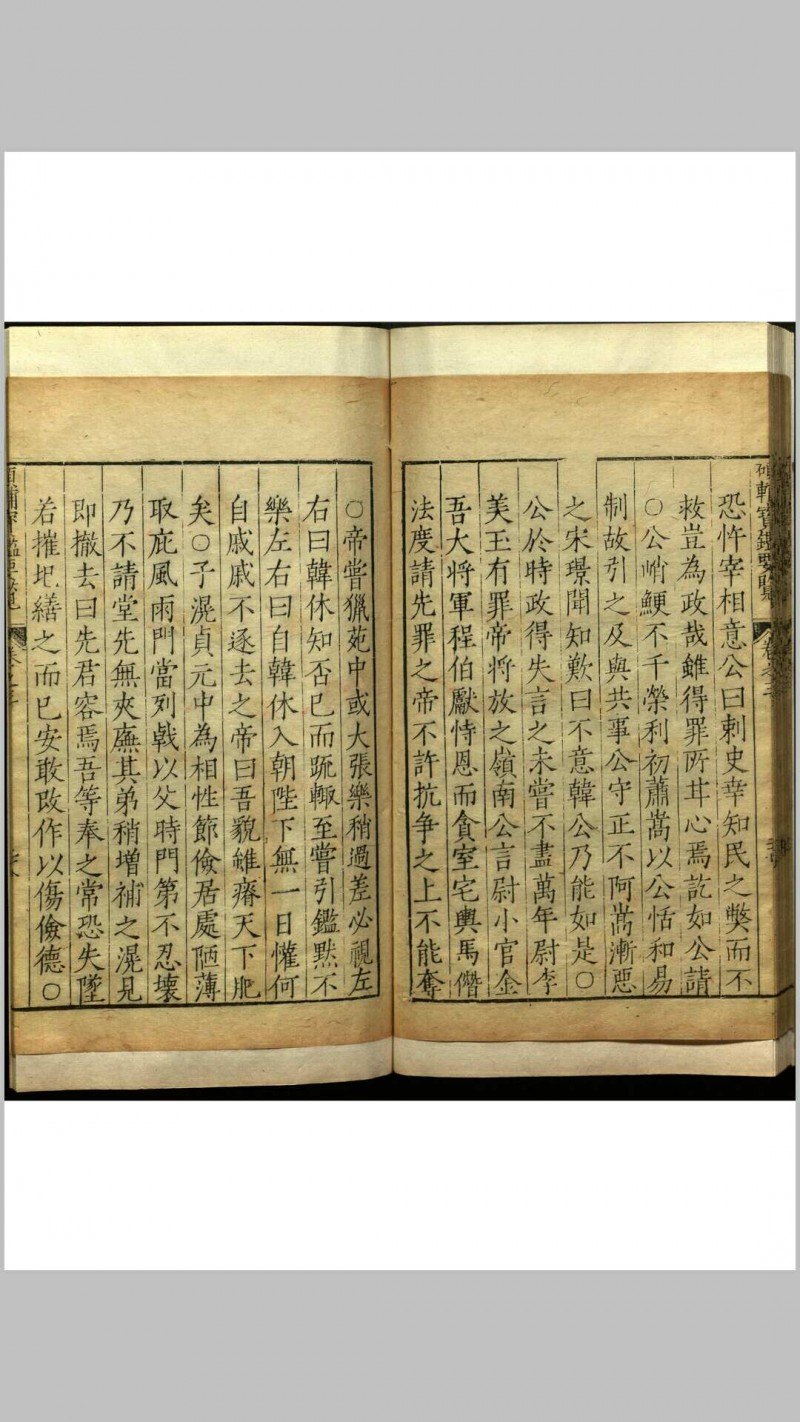 恐忤宰相意公曰刺史幸知民之獘而不
救豈為政哉雖得罪所甘心焉訖如公請
○公峭鯁不干榮利初蕭嵩以公恬和易
制故引之及與共事公守正不阿嵩漸惡
之宋璟聞知歎曰不意韓公乃能如是○
公於時政得失言之未嘗不盡萬年尉李
美玉有罪帝将放之嶺南公言尉小官金
吾大將軍程伯獻恃恩而貪室宅輿馬僭
法度請先罪之帝不許抗争之上不能奪
○帝嘗獵苑中或大張樂稍過差必視左
右曰韓休知否已而䟽輙至嘗引鑑黙不
樂左右曰自韓休入朝陛下無一日懽何
自戚戚不逐去之帝曰吾貌雖瘠天下肥
矣○子滉貞元中為相性節儉居處陋薄
取庇風雨門當列㦸以父時門第不忍壊
乃不請堂先無夾廡其弟稍増補之滉見
即撤去曰先君容焉吾等奉之常恐失墜
若摧圮繕之而已安敢改作以傷儉德○